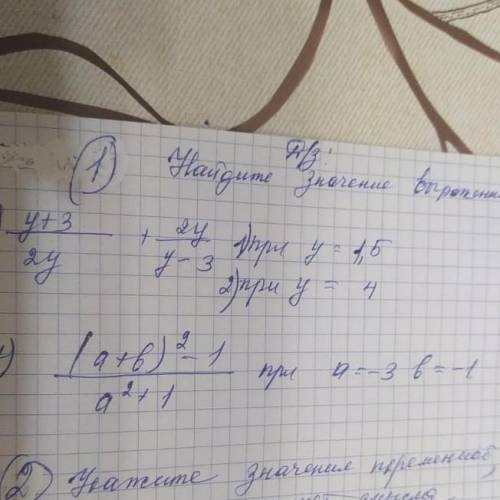 Д/з:
1 Найдите значение выражени
y+3/2y + 2y/y-3 1) при y = 1,5
2) при y = 4
(a+b)²-1/a²+1 при a=-3 b=-1
2) Укажите значения переменной,